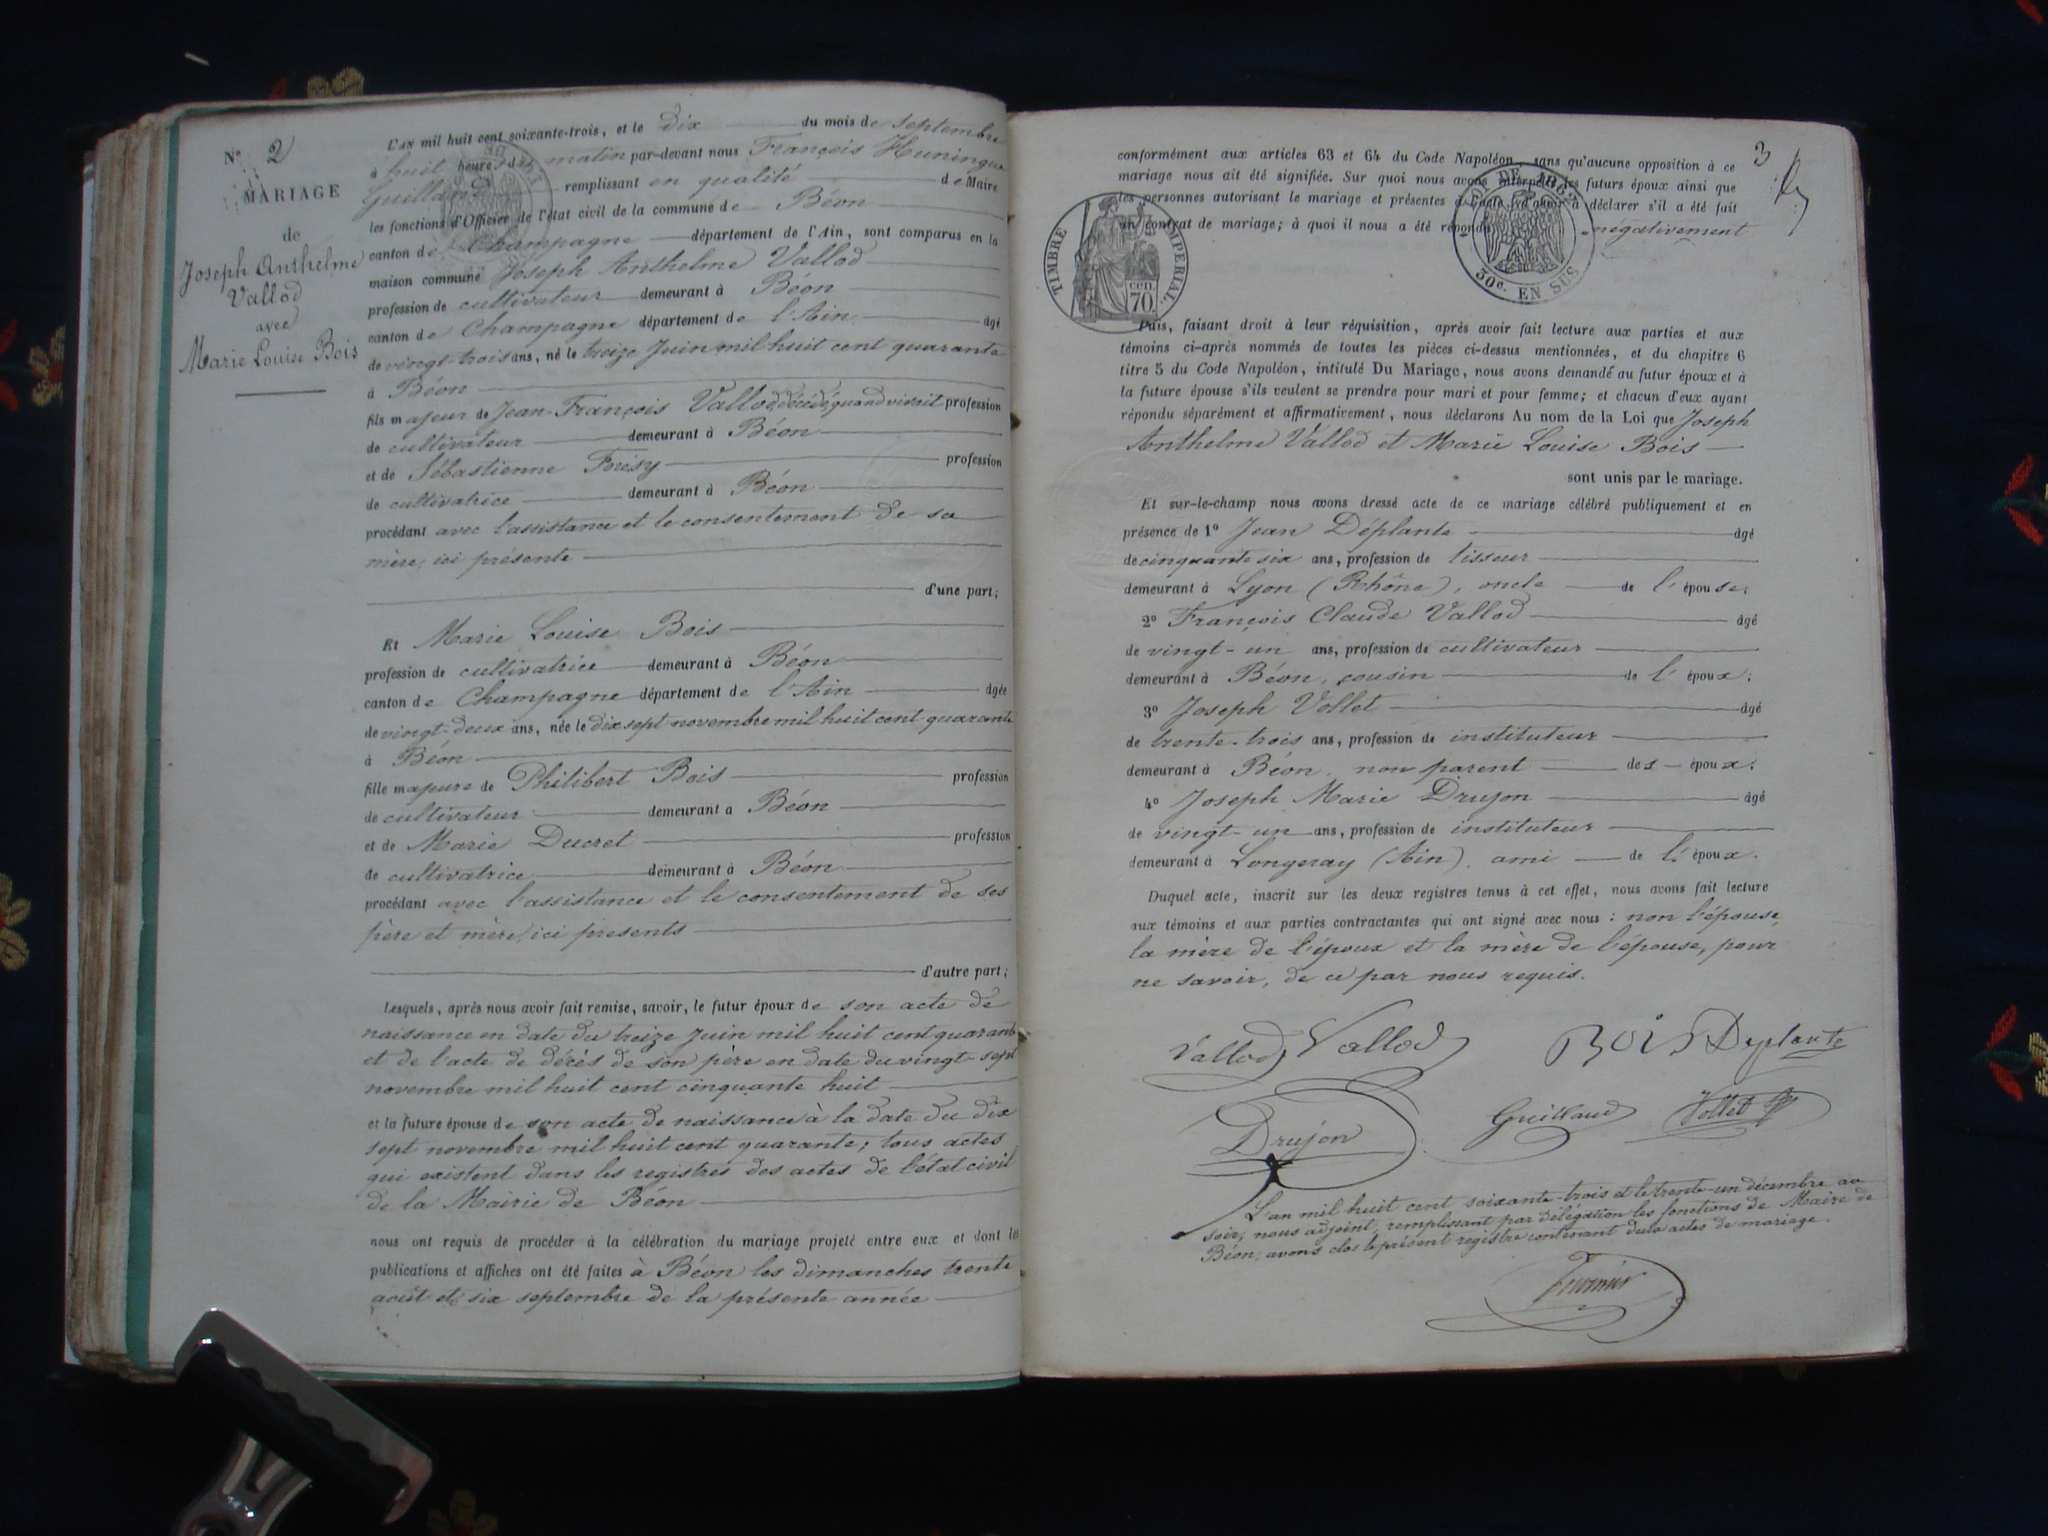 N° 2
MARIAGE
de
Joseph Anthelme
Vallod
avec
Marie Louise Bois
L'AN mil huit cent soixante-trois, et le dix du mois de septembre
à huit heures du matin par-devant nous François Huningue
Guilland remplissant en qualité de Maire
les fonctions d'Officier de l'état civil de la commune de Béon
canton de Champagne département de l'Ain, sont comparus en la
maison commune Joseph Anthelme Vallod
profession de cultivateur demeurant à Béon
canton de Champagne département de l'Ain âgé
de vingt-trois ans, né le treize Juin mil huit cent quarante
à Béon
fils majeur de Jean-François Vallod décédé quand vivait profession
de cultivateur demeurant à Béon
et de Sébastienne Forésy profession
de cultivatrice demeurant à Béon
procédant avec l'assistance et le consentement de sa
mère, ici présente
d'une part;
Et Marie Louise Bois
profession de cultivatrice demeurant à Béon
canton de Champagne département de l'Ain âgée
de vingt-deux ans, née le dix sept novembre mil huit cent quarante
à Béon
fille majeure de Philibert Bois profession
de cultivateur demeurant à Béon
et de Marie Ducret profession
de cultivatrice demeurant à Béon
procédant avec l'assistance et le consentement de ses
père et mère, ici présents
d'autre part;
Lesquels, après nous avoir fait remise, savoir, le futur époux de son acte de
naissance en date du treize Juin mil huit cent quarante
et de l'acte de décès de son père en date du vingt-sept
novembre mil huit cent cinquante huit
et la future épouse de son acte de naissance à la date du dix
sept novembre mil huit cent quarante; tous actes
qui existent dans les registres des actes de l'état civil
de la Mairie de Béon
nous ont requis de procéder à la célébration du mariage projeté entre eux et dont les
publications et affiches ont été faites à Béon les dimanches trente
août et six septembre de la présente année
3
conformément aux articles 63 et 64 du Code Napoléon, sans qu'aucune opposition à ce
mariage nous ait été signifiée. Sur quoi nous avons interpellé les futurs époux ainsi que
les personnes autorisant le mariage et présentes à déclarer s'il a été fait
un contrat de mariage; à quoi il nous a été répondu négativement
TIMBRE IMPERIAL
CEN. 70
LOI DE 1862
50c. EN SUS
Puis, faisant droit à leur réquisition, après avoir fait lecture aux parties et aux
témoins ci-après nommés de toutes les pièces ci-dessus mentionnées, et du chapitre 6
titre 5 du Code Napoléon, intitulé Du Mariage, nous avons demandé au futur époux et à
la future épouse s'ils veulent se prendre pour mari et pour femme; et chacun d'eux ayant
répondu séparément et affirmativement, nous déclarons Au nom de la Loi que Joseph
Anthelme Vallod et Marie Louise Bois
sont unis par le mariage.
Et sur-le-champ nous avons dressé acte de ce mariage célébré publiquement et en
présence de 1° Jean Déplante âgé
de cinquante six ans, profession de tisseur
demeurant à Lyon (Rhône), oncle de l'épouse;
2° François Claude Vallod âgé
de vingt-un ans, profession de cultivateur
demeurant à Béon, cousin de l'époux;
3° Joseph Vollet âgé
de trente-trois ans, profession de instituteur
demeurant à Béon, non parent des époux;
4° Joseph Marie Drujon âgé
de vingt-un ans, profession de instituteur
demeurant à Longeray (Ain), ami de l'époux.
Duquel acte, inscrit sur les deux registres tenus à cet effet, nous avons fait lecture
aux témoins et aux parties contractantes qui ont signé avec nous : non l'épouse,
la mère de l'époux et la mère de l'épouse, pour
ne savoir, de ce par nous requis.
Vallod Vallod BOIS Deplante
Drujon Guilland Vollet
L'an mil huit cent soixante-trois et le trente-un décembre au
soir, nous adjoint, remplissant par délégation les fonctions de Maire de
Béon, avons clos le présent registre contenant deux actes de mariage.